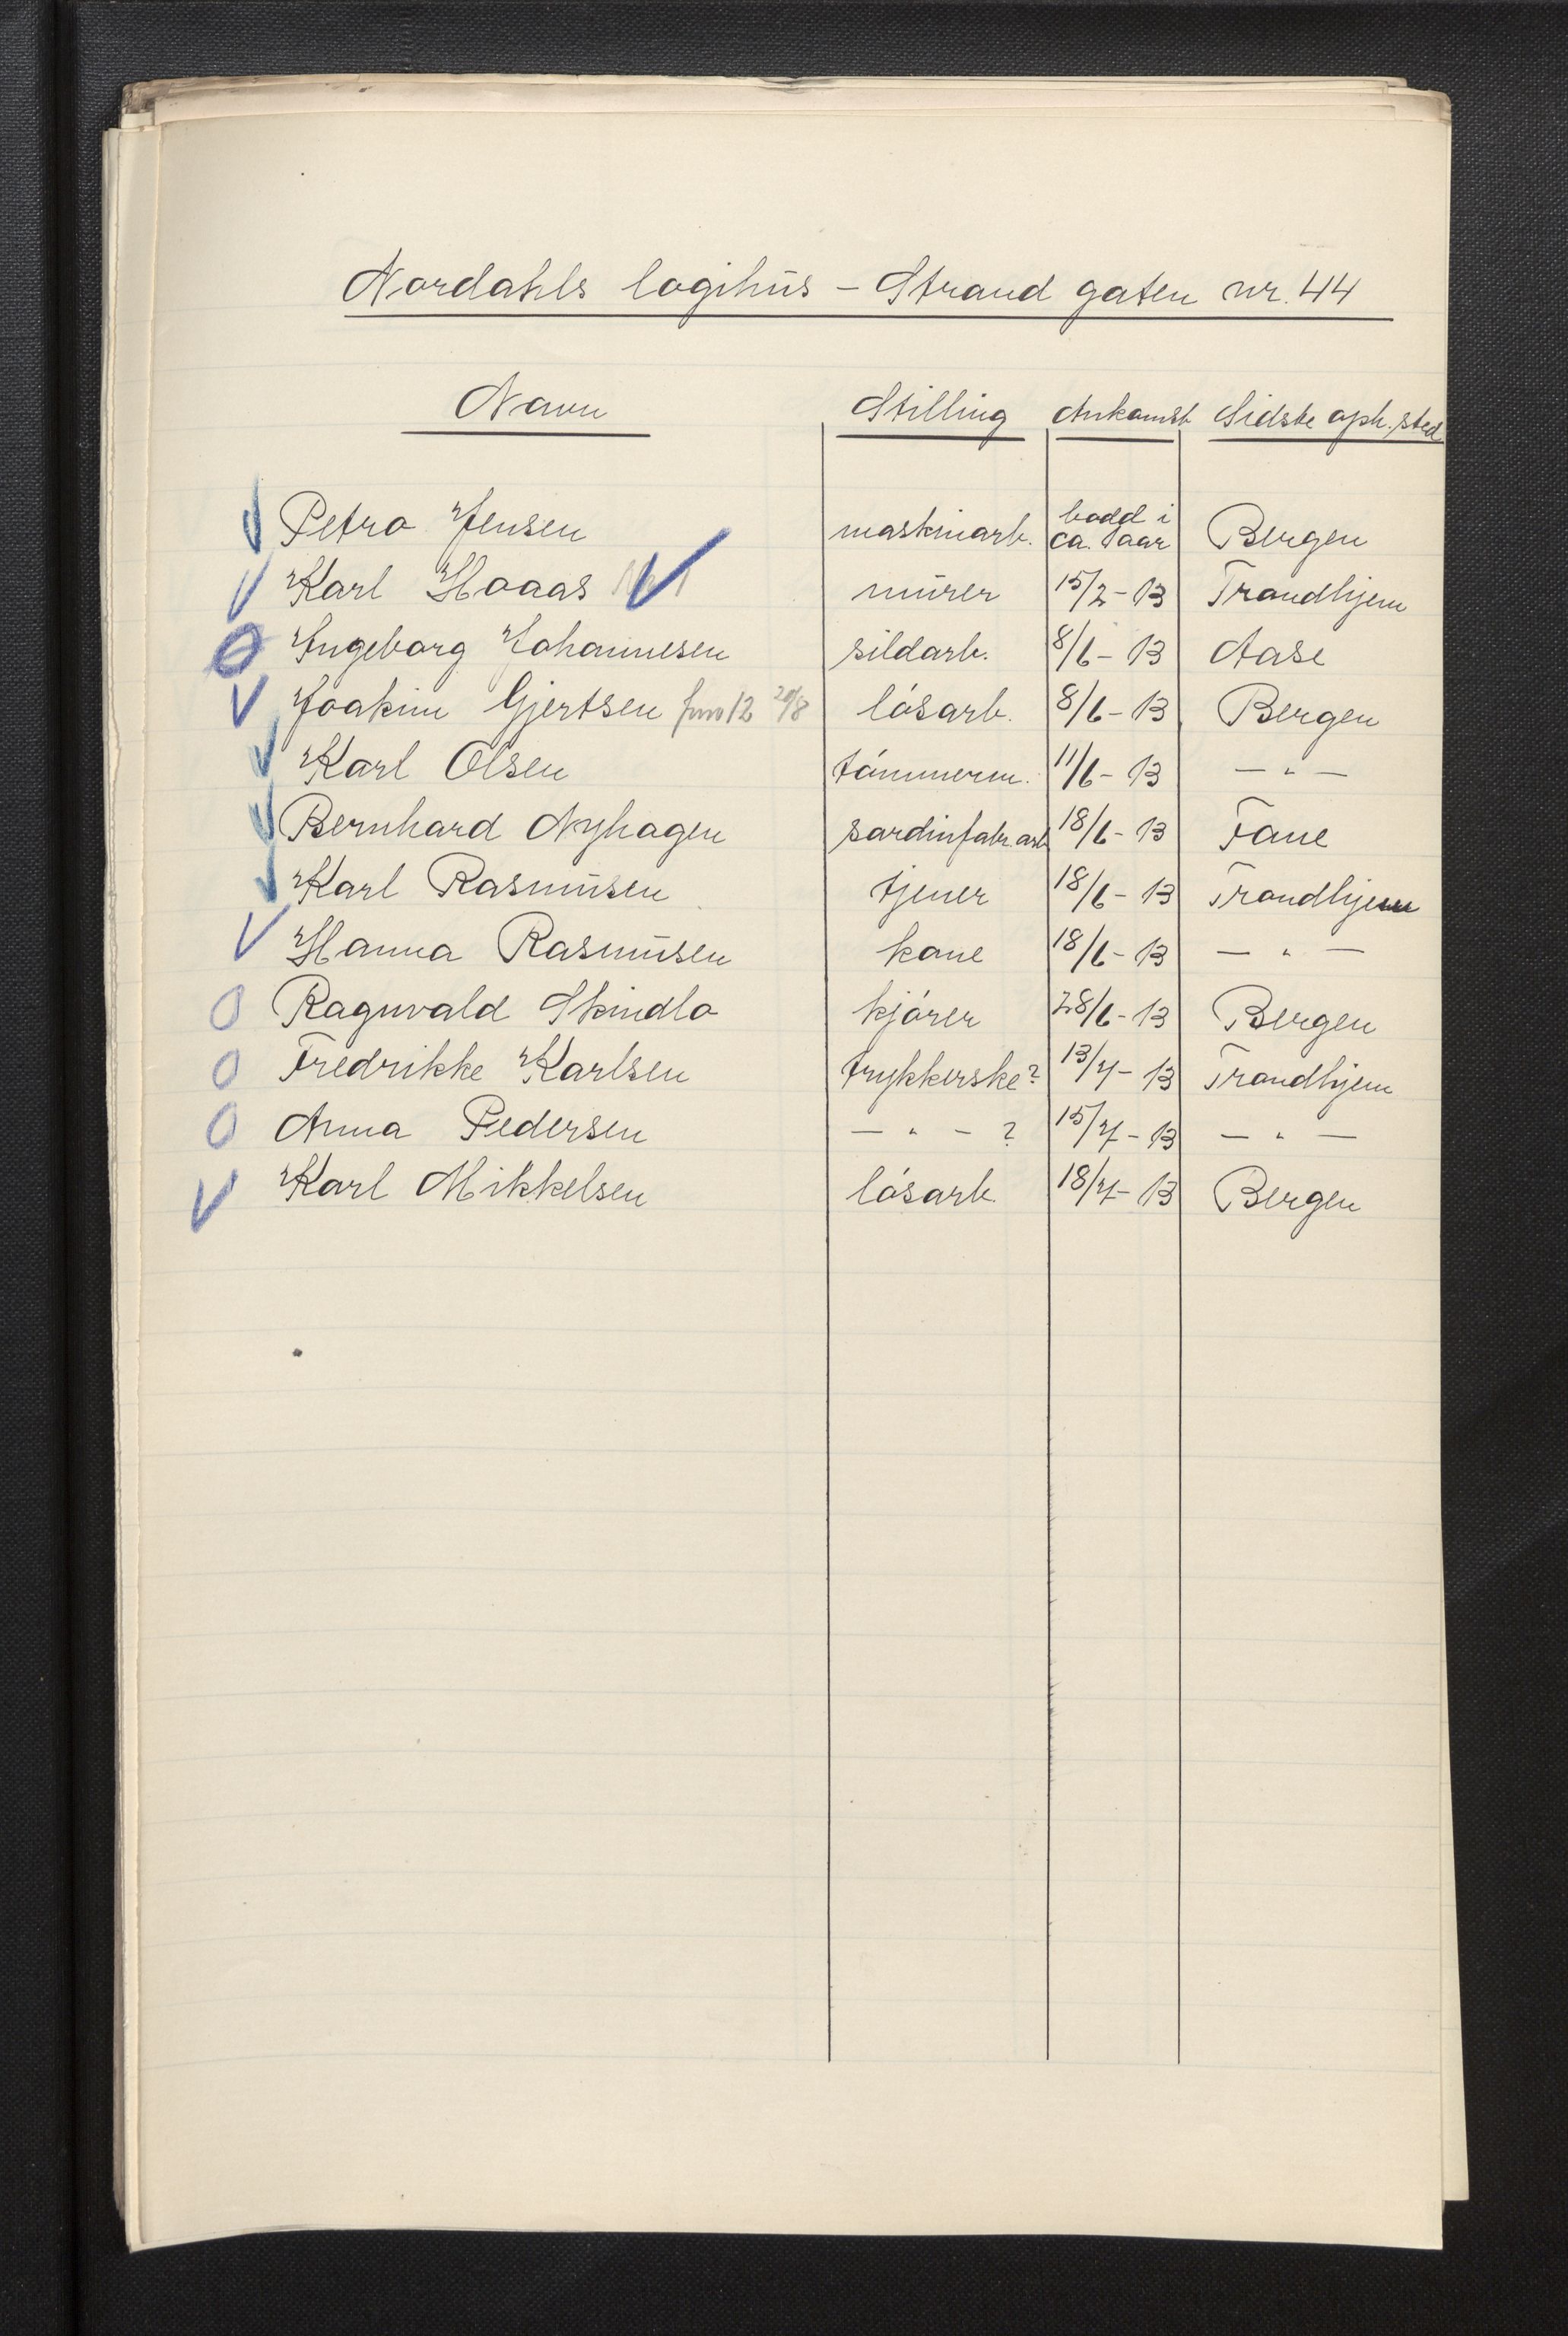 Nordahls logihüs – Strand gaten nr. 44
Navn Stilling Ankomst Sidste oph. sted
Petra Jensen maskinarb. bodd i ca. 1 aar Bergen
Karl Hoaas mürer 15/2 – 13 Trondhjem
Ingeborg Johannesen sildarb. 8/6 – 13 Aase
Joakim Gjertsen 12 20/8 lósarb. 8/6 – 13 Bergen
Karl Olsen tómmerm. 11/6 – 13 — " —
Bernhard Nyhagen sardinfabr. arb 18/6 – 13 Fane
Karl Rasmüsen tjener 18/6 – 13 Trondhjem
Hanna Rasmüsen kone 18/6 – 13 — " —
Ragnvald Skindlo kjórer 28/6 – 13 Bergen
Fredrikke Karlsen trykkerske? 13/7 – 13 Trondhjem
Anna Pedersen — " — ? 15/7 – 13 — " —
Karl Mikkelsen lósarb. 18/7 – 13 Bergen